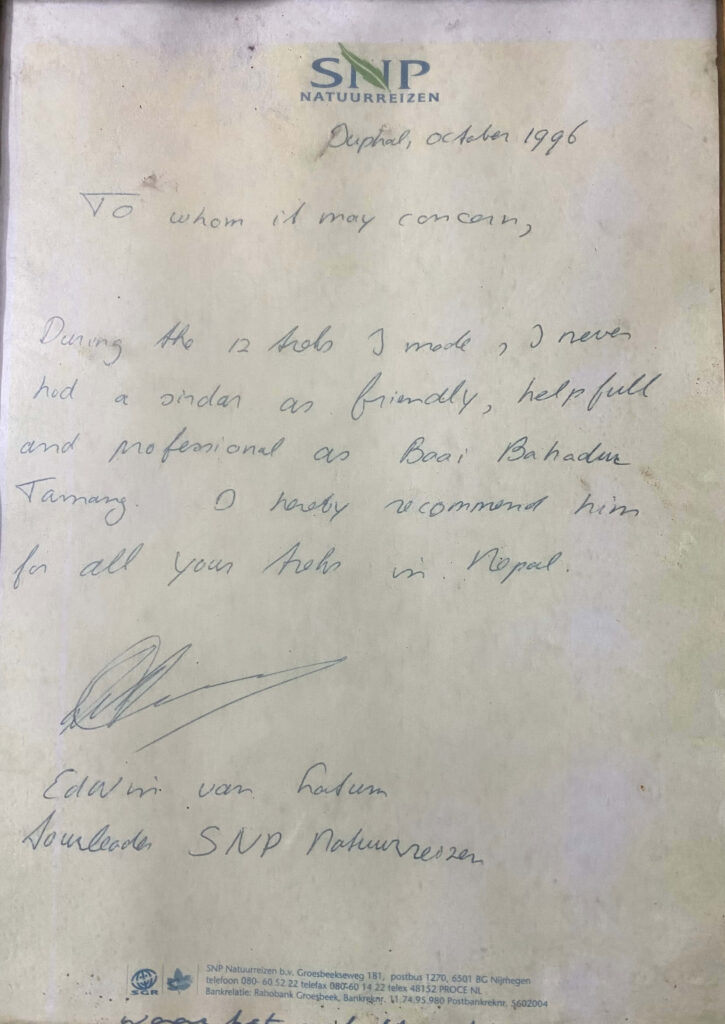 SNP
NATUURREIZEN
Duphal, october 1996
To whom it may concern,
During the 12 treks I made, I never
had a sirdar as friendly, helpfull
and professional as Baai Bahadur
Tamang. I hereby recommend him
for all your treks in Nepal.
Edwin van
tourleader SNP Natuurreizen
SNP Natuurreizen b.v. Groesbeekseweg 181, postbus 1270, 6501 BG Nijmegen
telefoon 080- 60 52 22 telefax 080-60 14 22 telex 48152 PROCE NL
SGR
Bankrelatie: Rabobank Groesbeek, Bankreknr. 11.74.95.980 Postbankreknr. 5602004